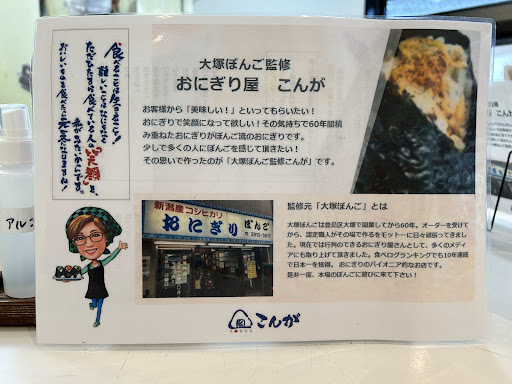 大塚ぼんご監修
おにぎり屋　こんが
お客様から「美味しい！」といってもらいたい！
おにぎりで笑顔になって欲しい！その気持ちで60年間積
み重ねたおにぎりがぼんご流のおにぎりです。
少しで多くの人にぼんごを感じて頂きたい！
その思いで作ったのが「大塚ぼんご監修こんが」です。
食べることは生きること!
難しいことはなしにして
ただひたすらに食べている人の
いい笑顔を、
私がみたいからです。
監修元「大塚ぼんご」とは
大塚ぼんごは豊島区大塚で開業してから60年。オーダーを受けて
から、認定職人がその場で作るをモットーに日々頑張ってきまし
た。現在では行列のできるおにぎり屋さんとして、多くのメディ
アにも取り上げて頂きました。食べログランキングでも10年連続
で日本一を獲得。 おにぎりのパイオニア的なお店です。
是非一度、本場のぼんごに遊びに来て下さい！
新潟産コシヒカリ
おにぎり
ぼんご
アルコ
こんが